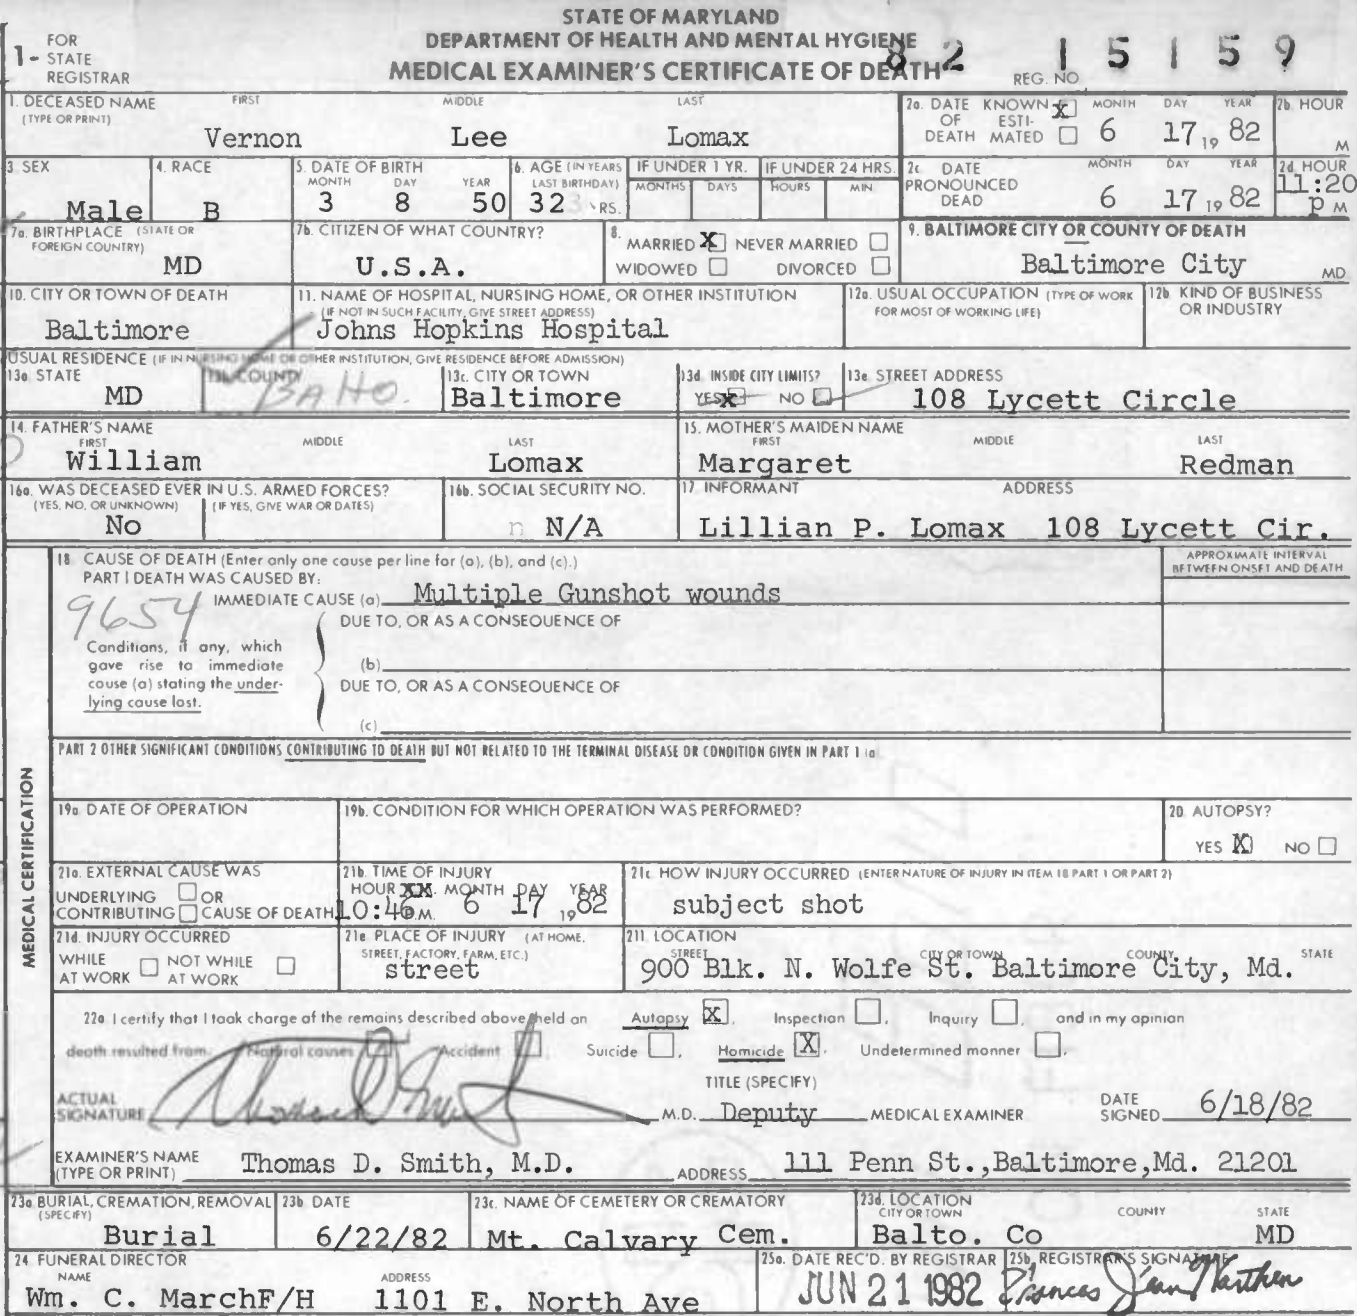 STATE OF MARYLAND
DEPARTMENT OF HEALTH AND MENTAL HYGIENE
MEDICAL EXAMINER'S CERTIFICATE OF DEATH
1- FOR STATE REGISTRAR
REG. NO. 82 15159
1. DECEASED NAME (TYPE OR PRINT) FIRST MIDDLE LAST
Vernon Lee Lomax
2a. DATE OF DEATH KNOWN X ESTIMATED MONTH DAY YEAR
6 17 1982
2b. HOUR M
3 SEX Male
4. RACE B
5. DATE OF BIRTH MONTH DAY YEAR
3 8 50
6. AGE (IN YEARS LAST BIRTHDAY) 32 YRS.
IF UNDER 1 YR. MONTHS DAYS
IF UNDER 24 HRS. HOURS MIN
2c DATE PRONOUNCED DEAD MONTH DAY YEAR
6 17 1982
2d. HOUR 11:20 P M
7a. BIRTHPLACE (STATE OR FOREIGN COUNTRY) MD
7b. CITIZEN OF WHAT COUNTRY? U.S.A.
8. MARRIED X NEVER MARRIED
WIDOWED DIVORCED
9. BALTIMORE CITY OR COUNTY OF DEATH
Baltimore City MD
10. CITY OR TOWN OF DEATH Baltimore
11. NAME OF HOSPITAL, NURSING HOME, OR OTHER INSTITUTION
(IF NOT IN SUCH FACILITY, GIVE STREET ADDRESS)
Johns Hopkins Hospital
12a. USUAL OCCUPATION (TYPE OF WORK FOR MOST OF WORKING LIFE)
12b. KIND OF BUSINESS OR INDUSTRY
USUAL RESIDENCE (IF IN NURSING HOME OR OTHER INSTITUTION, GIVE RESIDENCE BEFORE ADMISSION)
13a STATE MD
13b. COUNTY BAHO.
13c. CITY OR TOWN Baltimore
13d. INSIDE CITY LIMITS? YES X NO
13e STREET ADDRESS 108 Lycett Circle
14. FATHER'S NAME FIRST MIDDLE LAST
William Lomax
15. MOTHER'S MAIDEN NAME FIRST MIDDLE LAST
Margaret Redman
16a. WAS DECEASED EVER IN U.S. ARMED FORCES?
(YES, NO, OR UNKNOWN) (IF YES, GIVE WAR OR DATES)
No
16b. SOCIAL SECURITY NO. N/A
17 INFORMANT ADDRESS
Lillian P. Lomax 108 Lycett Cir.
MEDICAL CERTIFICATION
18 CAUSE OF DEATH (Enter only one cause per line for (a), (b), and (c).)
APPROXIMATE INTERVAL BETWEEN ONSET AND DEATH
PART I DEATH WAS CAUSED BY:
9654
IMMEDIATE CAUSE (a) Multiple Gunshot wounds
DUE TO, OR AS A CONSEQUENCE OF
Conditions, if any, which gave rise to immediate cause (a) stating the underlying cause last.
(b)
DUE TO, OR AS A CONSEQUENCE OF
(c)
PART 2 OTHER SIGNIFICANT CONDITIONS CONTRIBUTING TO DEATH BUT NOT RELATED TO THE TERMINAL DISEASE OR CONDITION GIVEN IN PART 1 (a)
19a DATE OF OPERATION
19b. CONDITION FOR WHICH OPERATION WAS PERFORMED?
20 AUTOPSY? YES X NO
21a. EXTERNAL CAUSE WAS
UNDERLYING OR
CONTRIBUTING CAUSE OF DEATH
21b. TIME OF INJURY
HOUR XX. MONTH DAY YEAR
10:46 P.M. 6 17 1982
21c HOW INJURY OCCURRED (ENTER NATURE OF INJURY IN ITEM 18 PART 1 OR PART 2)
subject shot
21d. INJURY OCCURRED
WHILE AT WORK NOT WHILE AT WORK
21e PLACE OF INJURY (AT HOME, STREET, FACTORY, FARM, ETC.)
street
21f. LOCATION STREET CITY OR TOWN COUNTY STATE
900 Blk. N. Wolfe St. Baltimore City, Md.
22a I certify that I took charge of the remains described above, held an Autopsy X, Inspection, Inquiry, and in my opinion
death resulted from: Natural causes, Accident, Suicide, Homicide X, Undetermined manner.
ACTUAL SIGNATURE Thomas D Smith M.D.
TITLE (SPECIFY) Deputy MEDICAL EXAMINER
DATE SIGNED 6/18/82
EXAMINER'S NAME (TYPE OR PRINT) Thomas D. Smith, M.D.
ADDRESS 111 Penn St.,Baltimore,Md. 21201
23a BURIAL, CREMATION, REMOVAL (SPECIFY) Burial
23b DATE 6/22/82
23c. NAME OF CEMETERY OR CREMATORY Mt. Calvary Cem.
23d. LOCATION CITY OR TOWN COUNTY STATE
Balto. Co MD
24 FUNERAL DIRECTOR NAME ADDRESS
Wm. C. MarchF/H 1101 E. North Ave
25a. DATE REC'D. BY REGISTRAR JUN 21 1982
25b. REGISTRAR'S SIGNATURE Frances Jean Warthen